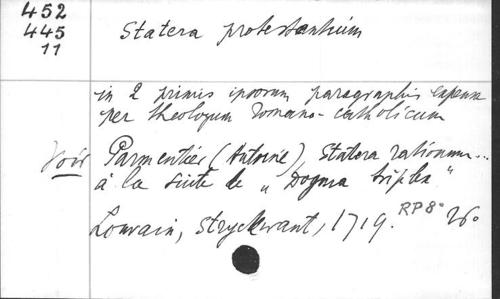 452
445
11
Statera protestantium
in 2 primis ipsorum paragraphis expensa
per theologum romano-catholicum
Voir Parmentier (Antoine), Statera rationum...
à la suite de "Dogma triplex"
Louvain, Stryckwant, 1719. RP 8° 26°